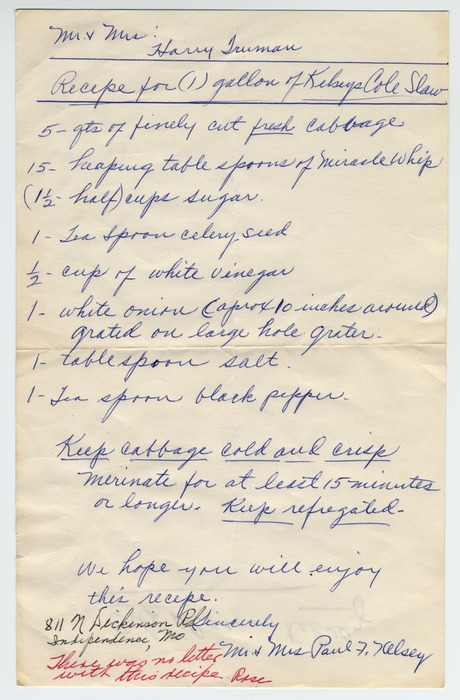 Mr. & Mrs.
Harry Truman
Recipe for (1) gallon of Kelseys Cole Slaw
5- qts of finely cut fresh cabbage
15- heaping table spoons of Miracle Whip
(1½- half) cups sugar.
1- Tea spoon celery seed
½- cup of white vinegar
1- white onion (aprox 10 inches around)
grated on large hole grater.
1- tablespoon salt.
1- Tea spoon black pepper.
Keep cabbage cold and crisp
Merinate for at least 15 minutes
or longer. Keep refregated-
We hope you will enjoy
this recipe.
Sincerely
Mr & Mrs Paul F. Kelsey
811 N Dickinson Rd
Independence, Mo
There was no letter
with this recipe. Rose